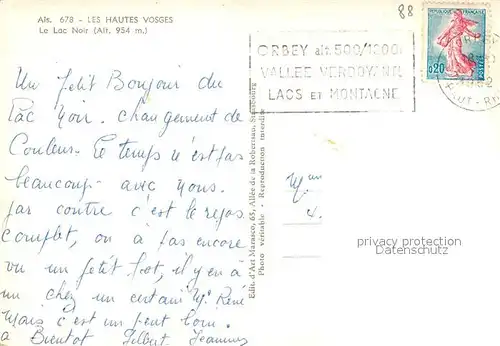 Als. 678 - LES HAUTES VOSGES
Le Lac Noir (Alt. 954 m.)
88
ORBEY alt. 500/1200
VALLÉE VERDOYANTE
LACS ET MONTAGNE
REPUBLIQUE FRANÇAISE
0,20
POSTES
ORBEY
HAUT-RHIN
Un Petit Bonjour du
Lac Noir. Changement de
Couleur. Le temps n'est pas
beaucoup avec nous.
par contre c'est le repos
complet, on a pas encore
vu un petit , il y en a
un chez un certain Mr René
Mais c'est un peut loin.
a Bientot Gilbert Jeannine
Edit. d'Art Maresco, 65, Allée de la Robertsau, Strasbourg
Photo véritable - Reproduction interdite
privacy protection
Datenschutz